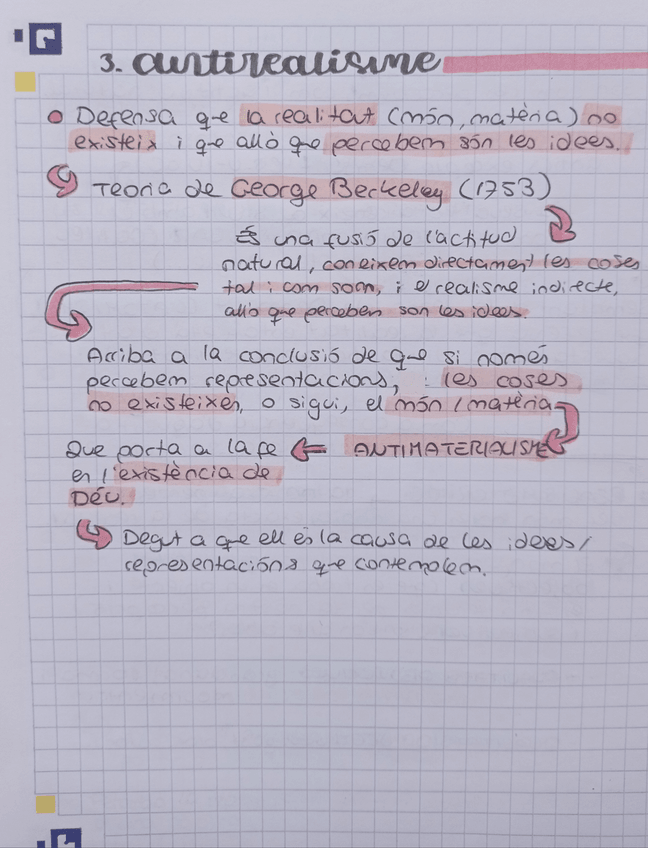 3. antirealisme
Defensa que la realitat (món, matèria) no
existeix i que allò que percebem són les idees.
Teoria de George Berckeley (1753)
És una fusió de l'actitud
natural, coneixem directament les coses
tal i com son, i el realisme indirecte,
allò que perceben son les idees.
Arriba a la conclusió de que si només
percebem representacions, : les coses
no existeixen, o sigui, el món / matèria
ANTIMATERIALISME
Que porta a la fe
en l'existència de
Déu.
Degut a que ell és la causa de les idees/
representacións que contemplem.